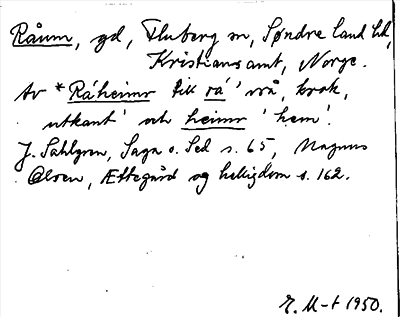 Råum, gd, Fluberg sn, Søndre land hd,
Kristiansamt, Norge.
Av *Ráheimr till rá 'vrå, krok,
utkant' och heimr 'hem'.
J. Sahlgren, Saga o. Sed s. 65, Magnus
Olsen, Ættegård og helligdom s. 162.
E. M-t 1950.